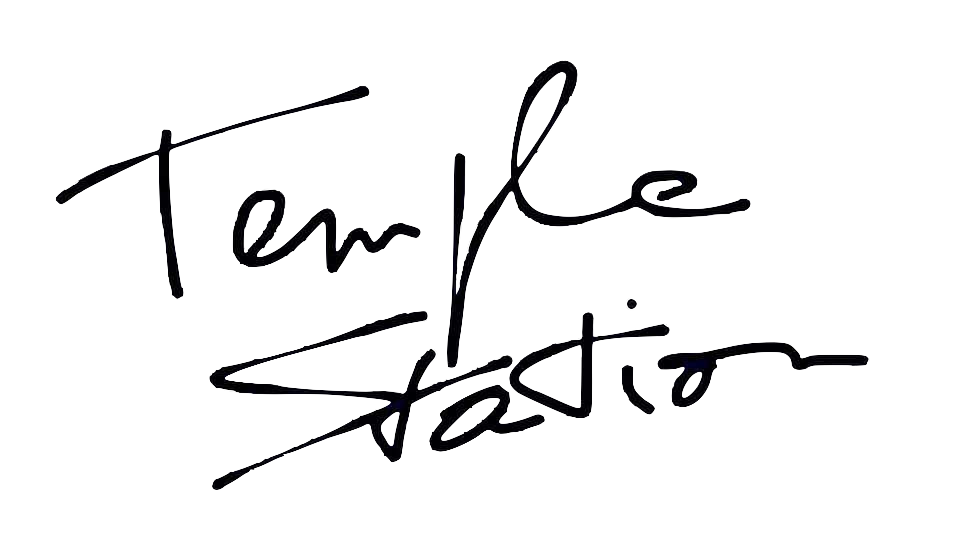 Temple
Station